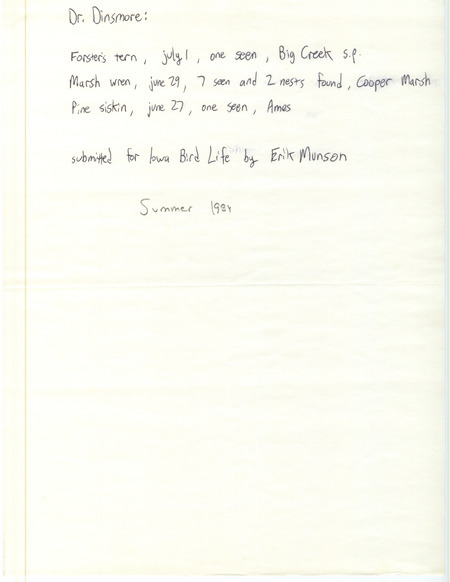 Dr. Dinsmore:
Forster's tern, july 1, one seen, Big Creek s.p.
Marsh wren, june 29, 7 seen and 2 nests found, Cooper Marsh
Pine siskin, june 27, one seen, Ames
submitted for Iowa Bird Life by Erik Munson
Summer 1984